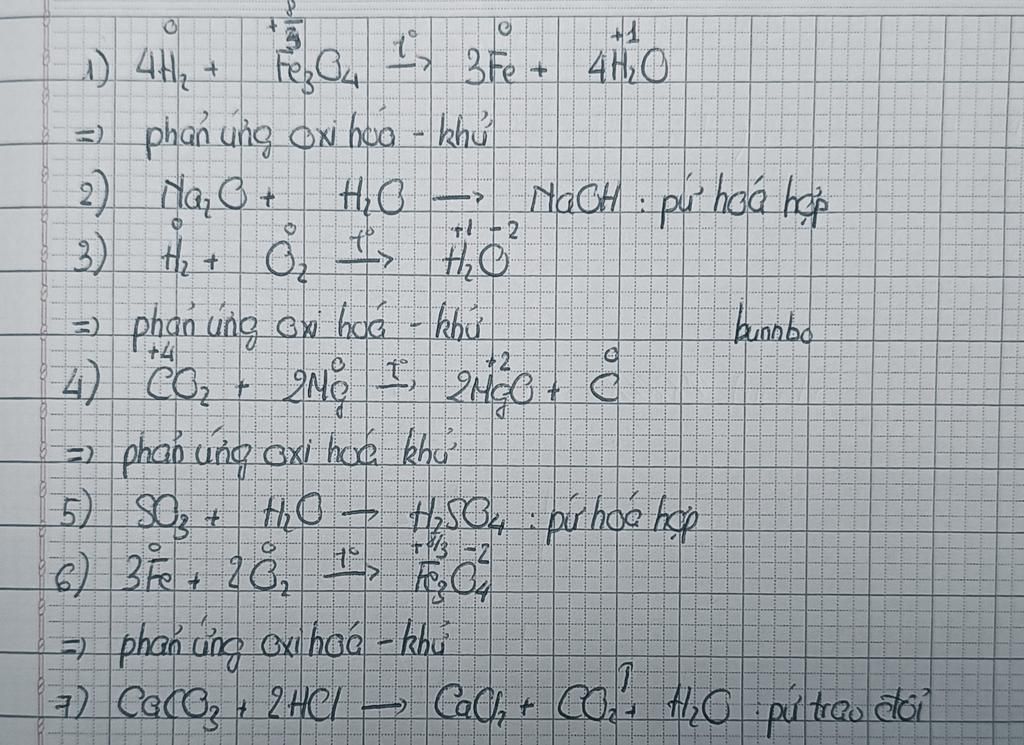 1) 4H₂ + Fe₃O₄ t°→ 3Fe + 4H₂O
=) phản ứng oxi hoá - khử
2) Na₂O + H₂O → NaOH : pứ hoá hợp
3) H₂ + O₂ t°→ H₂O
=) phản ứng oxi hoá - khử bunnbo
4) CO₂ + 2Mg t°→ 2MgO + C
=) phản ứng oxi hoá khử
5) SO₃ + H₂O → H₂SO₄ : pứ hoá hợp
6) 3Fe + 2O₂ t°→ Fe₃O₄
=) phản ứng oxi hoá - khử
7) CaCO₃ + 2HCl → CaCl₂ + CO₂↑ + H₂O : pứ trao đổi